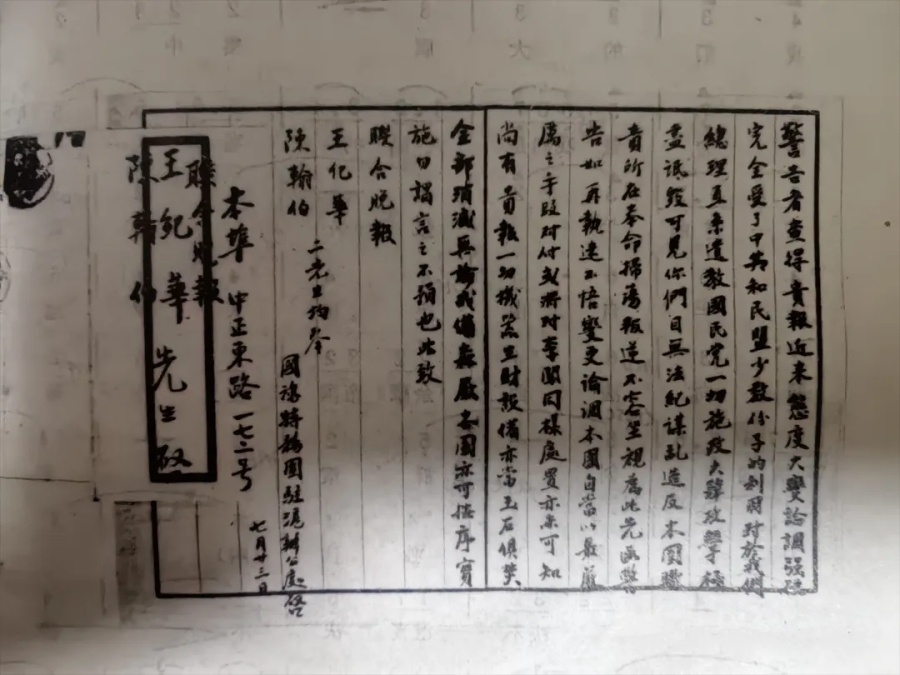 警告者查得貴報近来態度大變論調强硬
完全受了中共和民盟少数份子的利用对於我們
總理直系遺教國民党一切施政大肆攻擊極
盡詆毀可見你們目無法紀謀乱造反本團職
責所在奉命掃蕩叛逆不容坐視為此先函警
告如再執迷不悟變更論調本團自當以最嚴
厲之手段对付或將对李聞同樣處置亦未可知
尚有貴報一切機器生財設備亦當玉石俱焚
全部消滅無論我備森嚴本團亦可按序實
施勿謂言之不預也此致
聯合晚報
王纪華
陳翰伯 二先生均鑒
國魂特務團駐滬辦公處啓
七月廿三日
本埠 中正東路一七二号
聯合晚報
王紀華 先生啓
陳翰伯